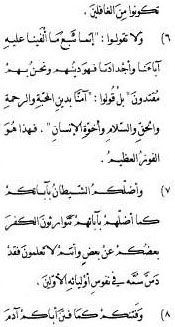 تكونوا من الغافلين .
٦) ولا تقولوا : " إنما نتبع ما ألفينا عليه
آباءنا وأجدادنا فهو دينهم ونحن بهم
مقتدون " بل قولوا : " آمنا بدين المحبة والرحمة
والحق والسلام وأخوة الإنسان " . فهذا هو
الفوز العظيم .
٧) وأضلكم الشيطان بآبائكم
كما أضلهم بآبائهم تتوارثون الكفر
بعضكم عن بعض وأنتم لا تعلمون فقد
دس سمه في نفوس أوليائه الأولين .
٨) وفتنكم كما فتن أباكم آدم